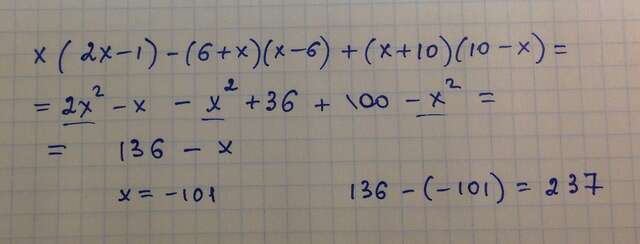 x(2x-1)-(6+x)(x-6)+(x+10)(10-x)=
=2x²-x-x²+36+100-x²=
= 136-x
x=-101 136-(-101)=237